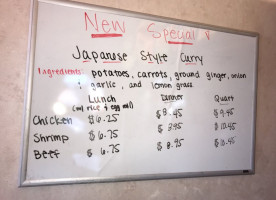 New Special
Japanese Style Curry
Ingredients: potatoes, carrots, ground ginger, onion
garlic, and lemon grass
Lunch Dinner Quart
(w/ rice & egg roll)
Chicken $6.25 $8.45 $9.45
Shrimp $6.75 $8.95 $10.45
Beef $6.75 $8.95 $10.45